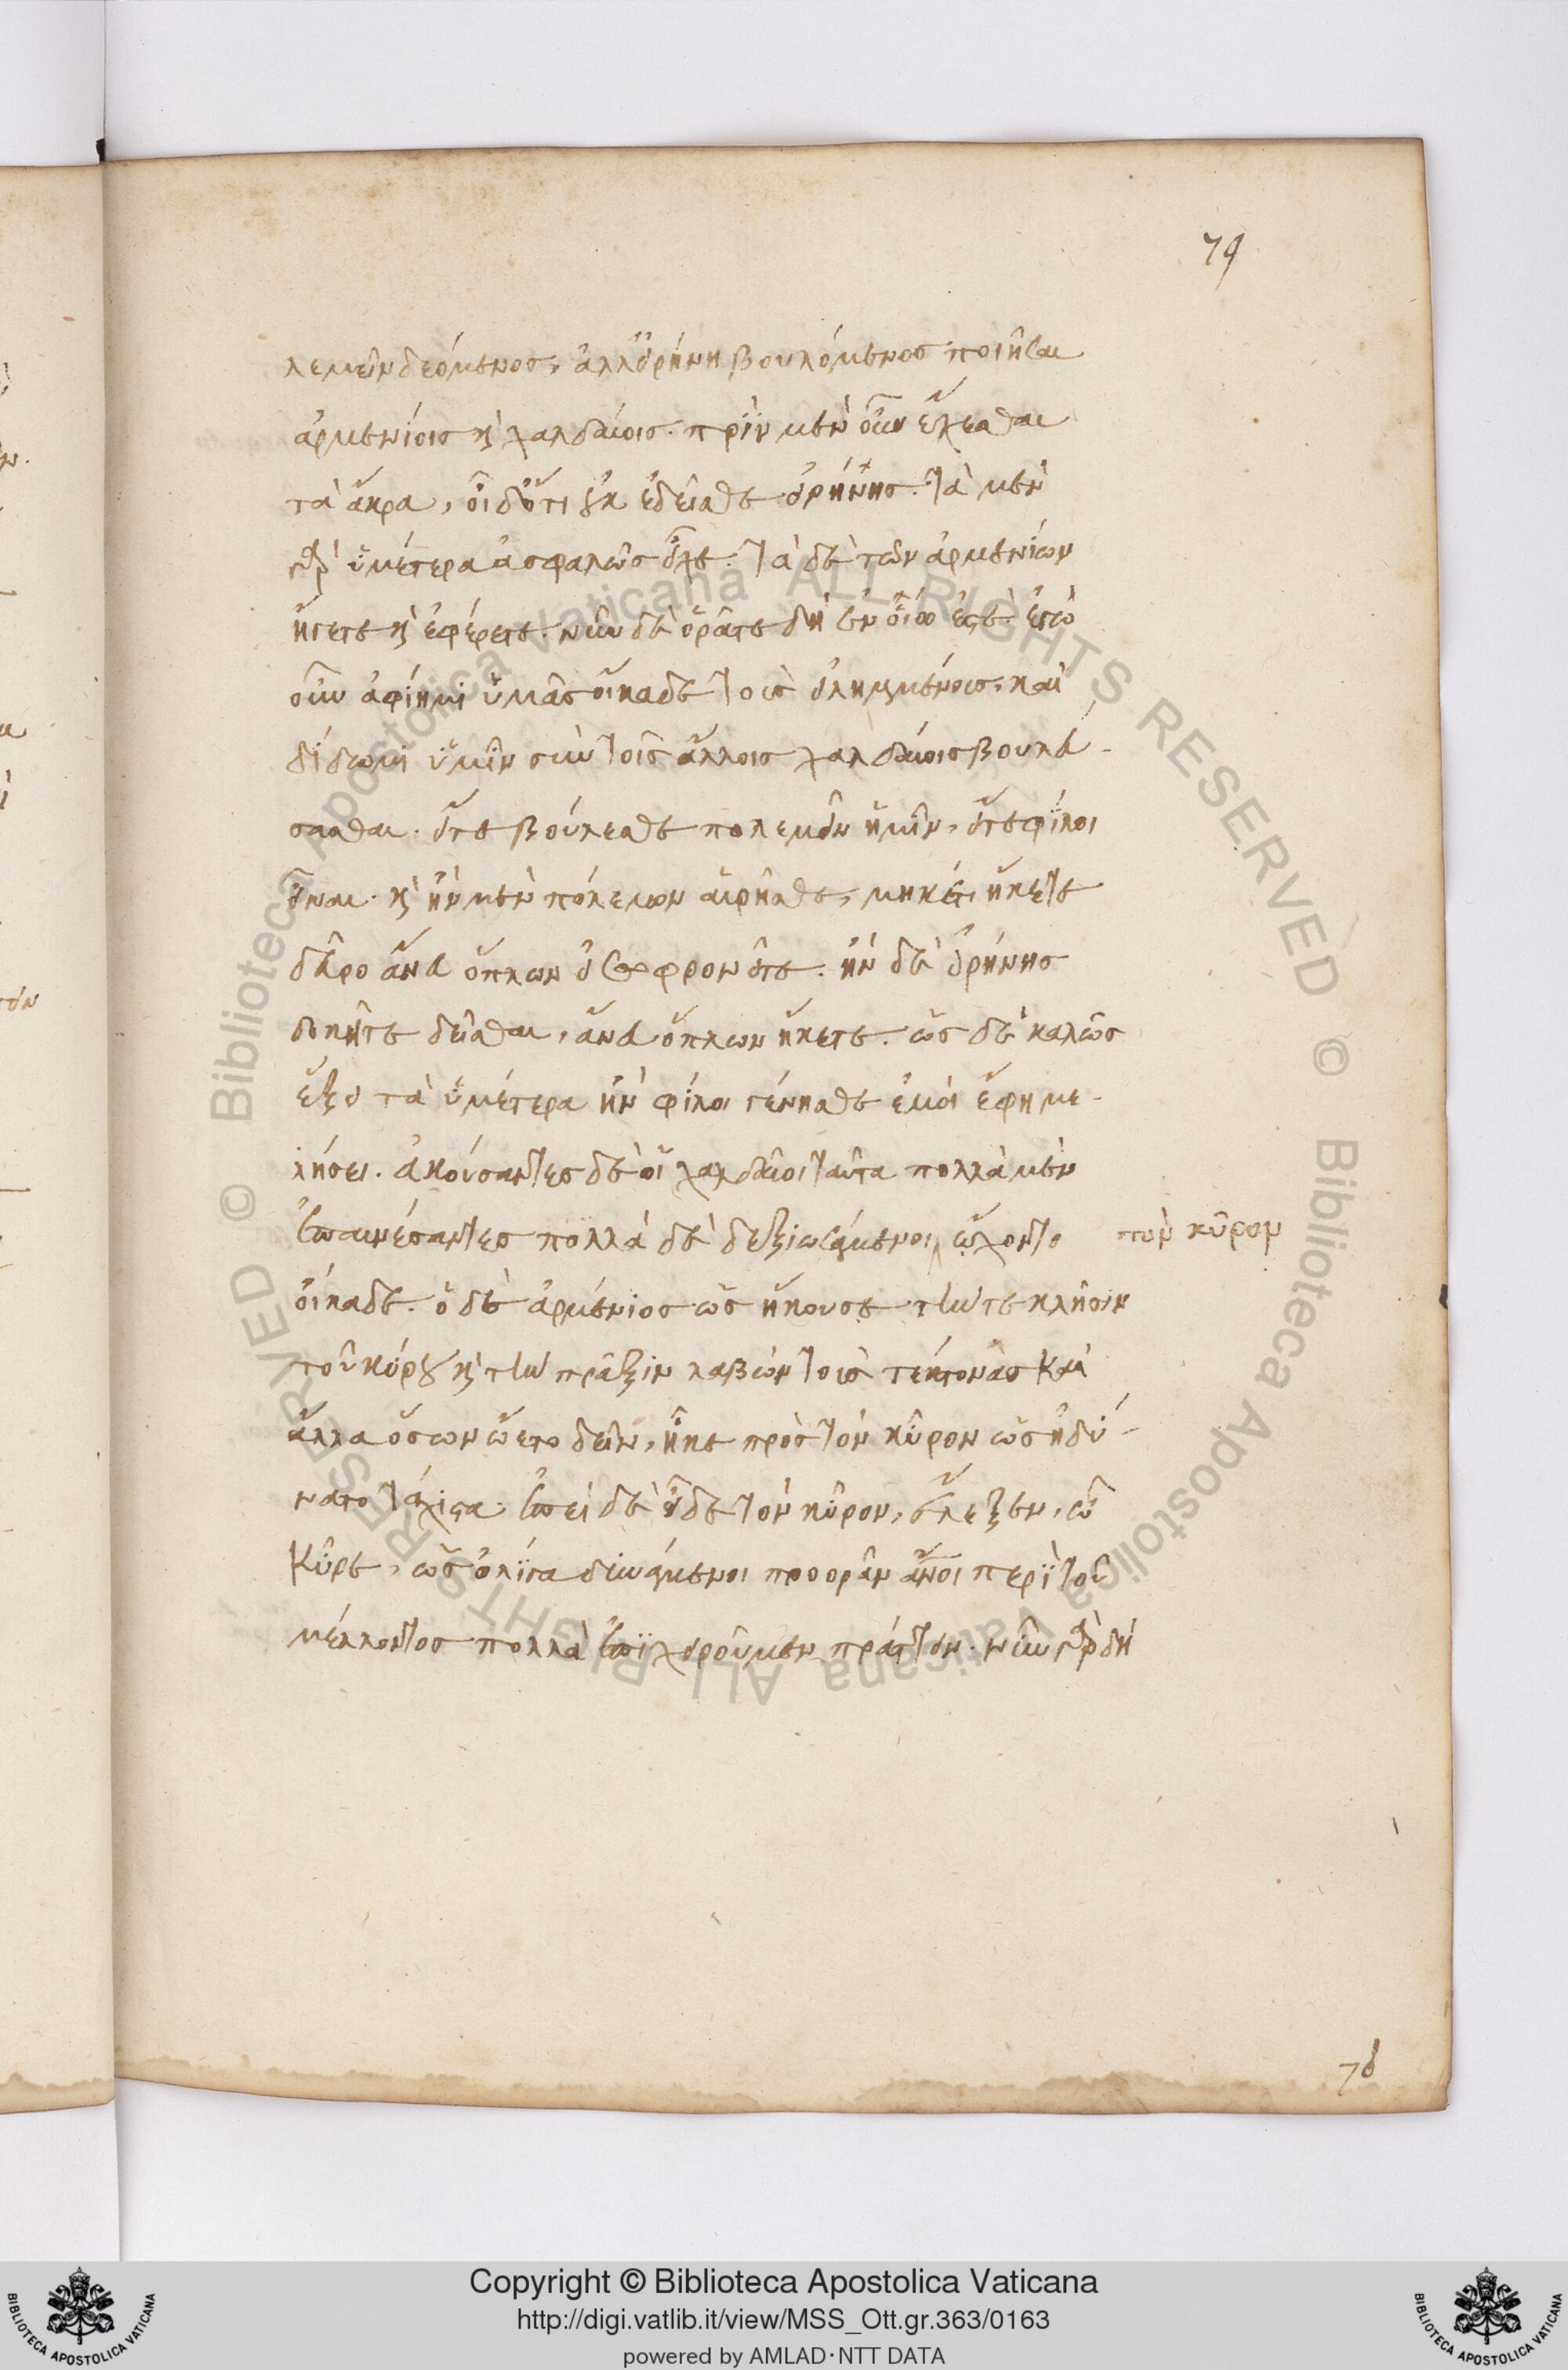 79
λεμεῖν δεόμενος, ἀλλ' εἰρήνην βουλόμενος ποιῆσαι
ἀρμενίοις κ̀ χαλδαίοις. πρὶν μὲν οὖν ἔχεσθαι
τὰ ἄκρα, οἶδ' ὅτι οὐκ ἐδεῖσθε εἰρήνης. τὰ μὲν
γὰρ ὑμέτερα ἀσφαλῶς εἶχε. τὰ δὲ τῶν ἀρμενίων
ἤγετε κ̀ ἐφέρετε. νῦν δὲ ὁρᾶτε δὴ ἐν οἵῳ ἐστέ. ἐγὼ
οὖν ἀφίημι ὑμᾶς οἴκαδε τοὺς εἰλημμένους, καὶ
δίδωμι ὑμῖν σὺν τοῖς ἄλλοις χαλδαίοις βουλεύ-
σασθαι. εἴτε βούλεσθε πολεμεῖν ἡμῖν, εἴτε φίλοι
εἶναι. κ̀ ἢν μὲν πόλεμον αἱρῆσθε, μηκέτι ἥκετε
δεῦρο ἄνευ ὅπλων εἰ σωφρονεῖτε. ἢν δὲ εἰρήνης
δοκῆτε δεῖσθαι, ἄνευ ὅπλων ἥκετε. ὡς δὲ καλῶς
ἕξει τὰ ὑμέτερα ἢν φίλοι γένησθε ἐμοὶ ἔφη με-
λήσει. ἀκούσαντες δὲ οἱ χαλδαῖοι ταῦτα πολλὰ μὲν
ἐπαινέσαντες πολλὰ δὲ δεξιωσάμενοι ᾤχοντο τὸν κῦρον
οἴκαδε. ὁ δὲ ἀρμένιος ὡς ἤκουσε τήν τε κλῆσιν
τοῦ κύρου κ̀ τὴν πρᾶξιν λαβὼν τοὺς τέκτονας καὶ
ἄλλα ὅσων ᾤετο δεῖν, ἧκε πρὸς τὸν κῦρον ὡς ἠδύ-
νατο τάχιστα. ἐπεὶ δὲ εἶδε τὸν κῦρον, ἔλεξεν, ὦ
κῦρε, ὡς ὀλίγα δυνάμενοι προορᾶν ἄνοι περὶ τοῦ
μέλλοντος πολλὰ ἐπιχειροῦμεν πράττειν. νῦν γὰρ δὴ
78
Copyright © Biblioteca Apostolica Vaticana
http://digi.vatlib.it/view/MSS_Ott.gr.363/0163
powered by AMLAD·NTT DATA